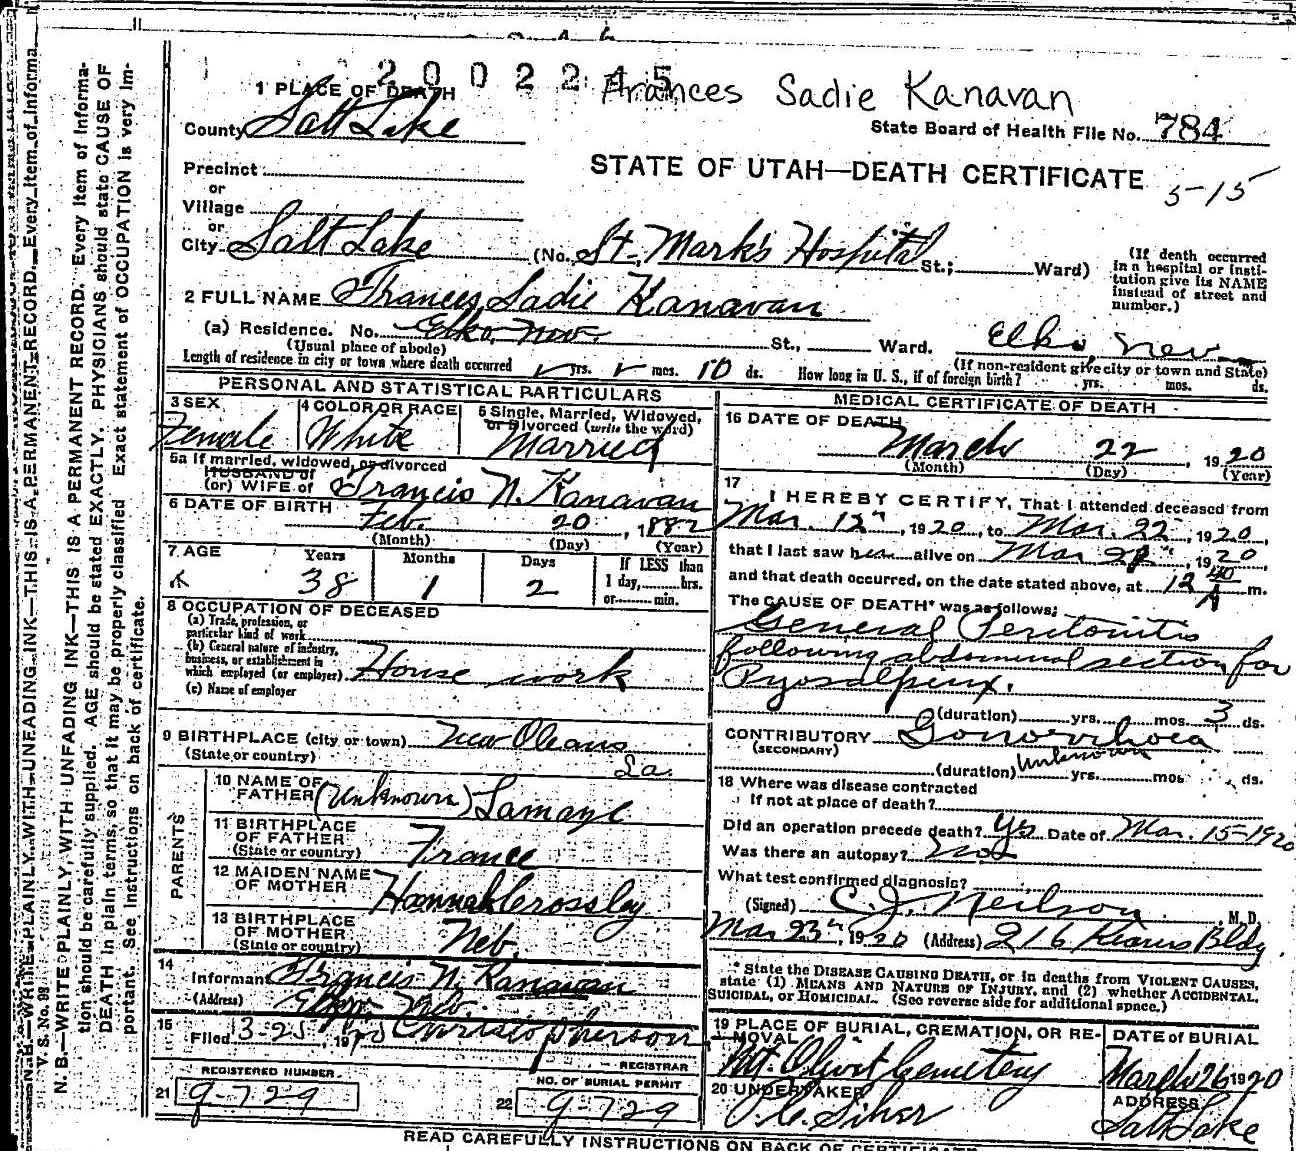 2002245
Frances Sadie Kanavan
1 PLACE OF DEATH
County Salt Lake
State Board of Health File No. 784
STATE OF UTAH—DEATH CERTIFICATE
5-15
Precinct
or
Village
or
City Salt Lake (No. St. Mark's Hospital St.; Ward)
(If death occurred in a hospital or institution give its NAME instead of street and number.)
2 FULL NAME Frances Sadie Kanavan
(a) Residence. No. Elko Nev. St., Ward. Elko, Nev
(Usual place of abode) (If non-resident give city or town and State)
Length of residence in city or town where death occurred yrs. mos. 10 ds. How long in U. S., if of foreign birth? yrs. mos. ds.
PERSONAL AND STATISTICAL PARTICULARS
3 SEX Female
4 COLOR OR RACE White
5 Single, Married, Widowed, or Divorced (write the word) Married
5a If married, widowed, or divorced
HUSBAND of
(or) WIFE of Francis N. Kanavan
6 DATE OF BIRTH Feb. 20, 1882
(Month) (Day) (Year)
7 AGE Years 38 Months 1 Days 2 If LESS than 1 day, hrs. or min.
8 OCCUPATION OF DECEASED
(a) Trade, profession, or particular kind of work
(b) General nature of industry, business, or establishment in which employed (or employer) House work
(c) Name of employer
9 BIRTHPLACE (city or town) New Oleans
(State or country) La.
PARENTS
10 NAME OF FATHER (Unknown)
11 BIRTHPLACE OF FATHER (State or country) France
12 MAIDEN NAME OF MOTHER Hannah Crossley
13 BIRTHPLACE OF MOTHER (State or country) Neb.
14 Informant Francis N. Kanavan
(Address)
15 Filed 3-25, 19
REGISTRAR
REGISTERED NUMBER.
21 9-729
NO. OF BURIAL PERMIT
22 9-729
MEDICAL CERTIFICATE OF DEATH
16 DATE OF DEATH March 22, 1920
(Month) (Day) (Year)
17 I HEREBY CERTIFY, That I attended deceased from
Mar. 12", 1920, to Mar. 22", 1920,
that I last saw her alive on Mar, 1920,
and that death occurred, on the date stated above, at 12 40 A m.
The CAUSE OF DEATH* was as follows:
General Peritonitis
following abdominal section for
Pyosalpinx.
(duration) yrs. mos. 3 ds.
CONTRIBUTORY Gonorrhoea
(SECONDARY)
(duration) Unknown yrs. mos ds.
18 Where was disease contracted
If not at place of death?
Did an operation precede death? Yes Date of Mar. 15-1920
Was there an autopsy?
What test confirmed diagnosis?
(Signed) C. J. Neilson, M. D.
Mar 23", 1920 (Address) 216 Kearns Bldg
* State the DISEASE CAUSING DEATH, or in deaths from VIOLENT CAUSES, state (1) MEANS AND NATURE OF INJURY, and (2) whether ACCIDENTAL, SUICIDAL, or HOMICIDAL. (See reverse side for additional space.)
19 PLACE OF BURIAL, CREMATION, OR REMOVAL Mt. Olivet Cemetery
DATE OF BURIAL March 26 1920
20 UNDERTAKER
ADDRESS Salt Lake
READ CAREFULLY INSTRUCTIONS ON BACK OF CERTIFICATE
V. S. No. 99
N. B.—WRITE PLAINLY, WITH UNFADING INK—THIS IS A PERMANENT RECORD. Every item of information should be carefully supplied. AGE should be stated EXACTLY. PHYSICIANS should state CAUSE OF DEATH in plain terms, so that it may be properly classified Exact statement of OCCUPATION is very important. See instructions on back of certificate.